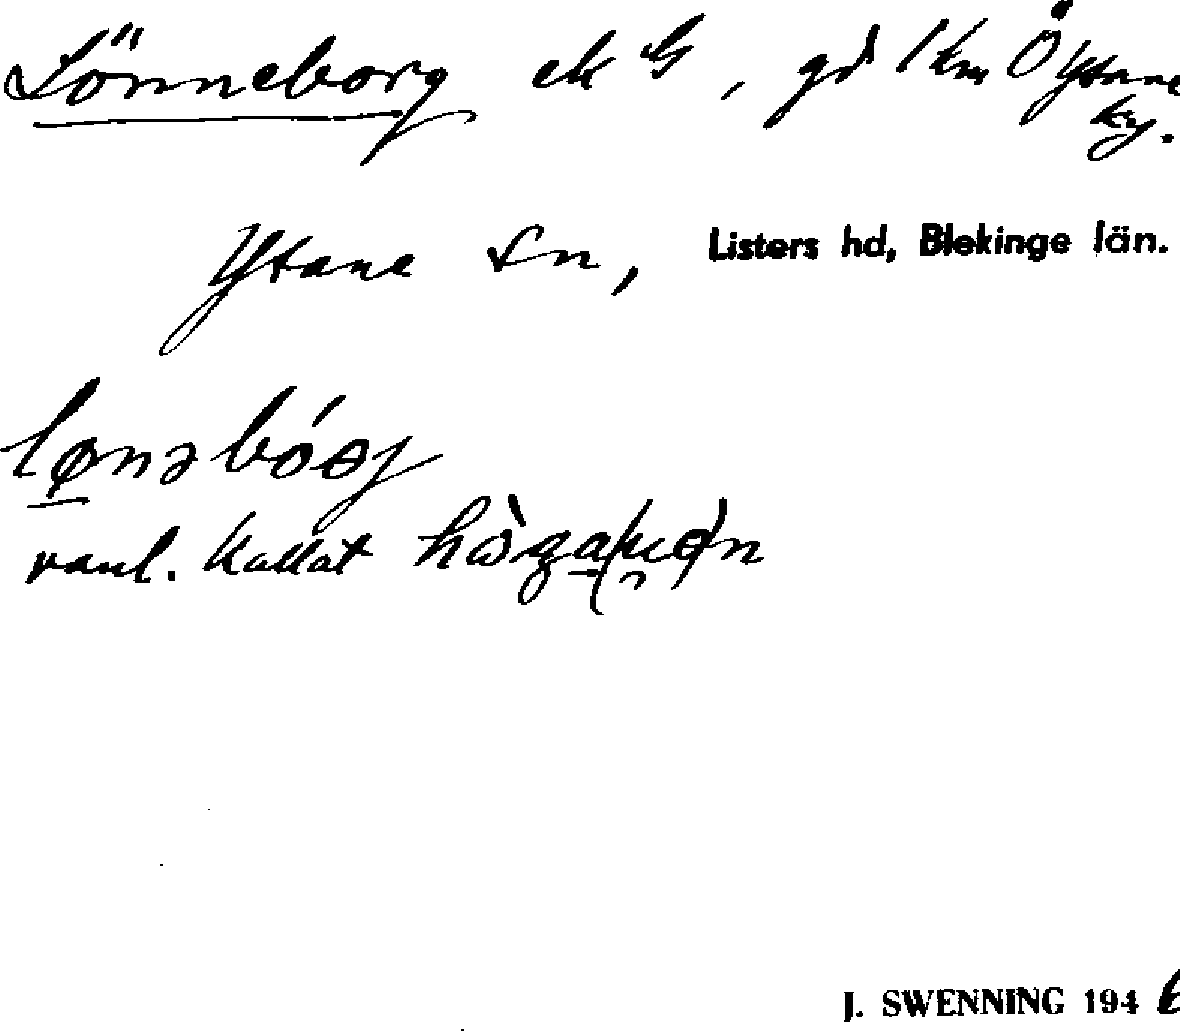 Lönneborg ek G, gd 1 km Ö Ytane
ky.
Ytane sn, Listers hd, Blekinge län.
lønəbóej
vanl. kallat
J. SWENNING 1946